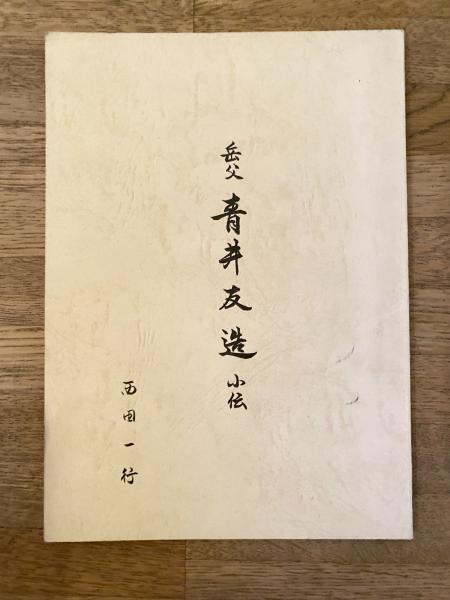 岳父 青井友造 小伝
西田一行